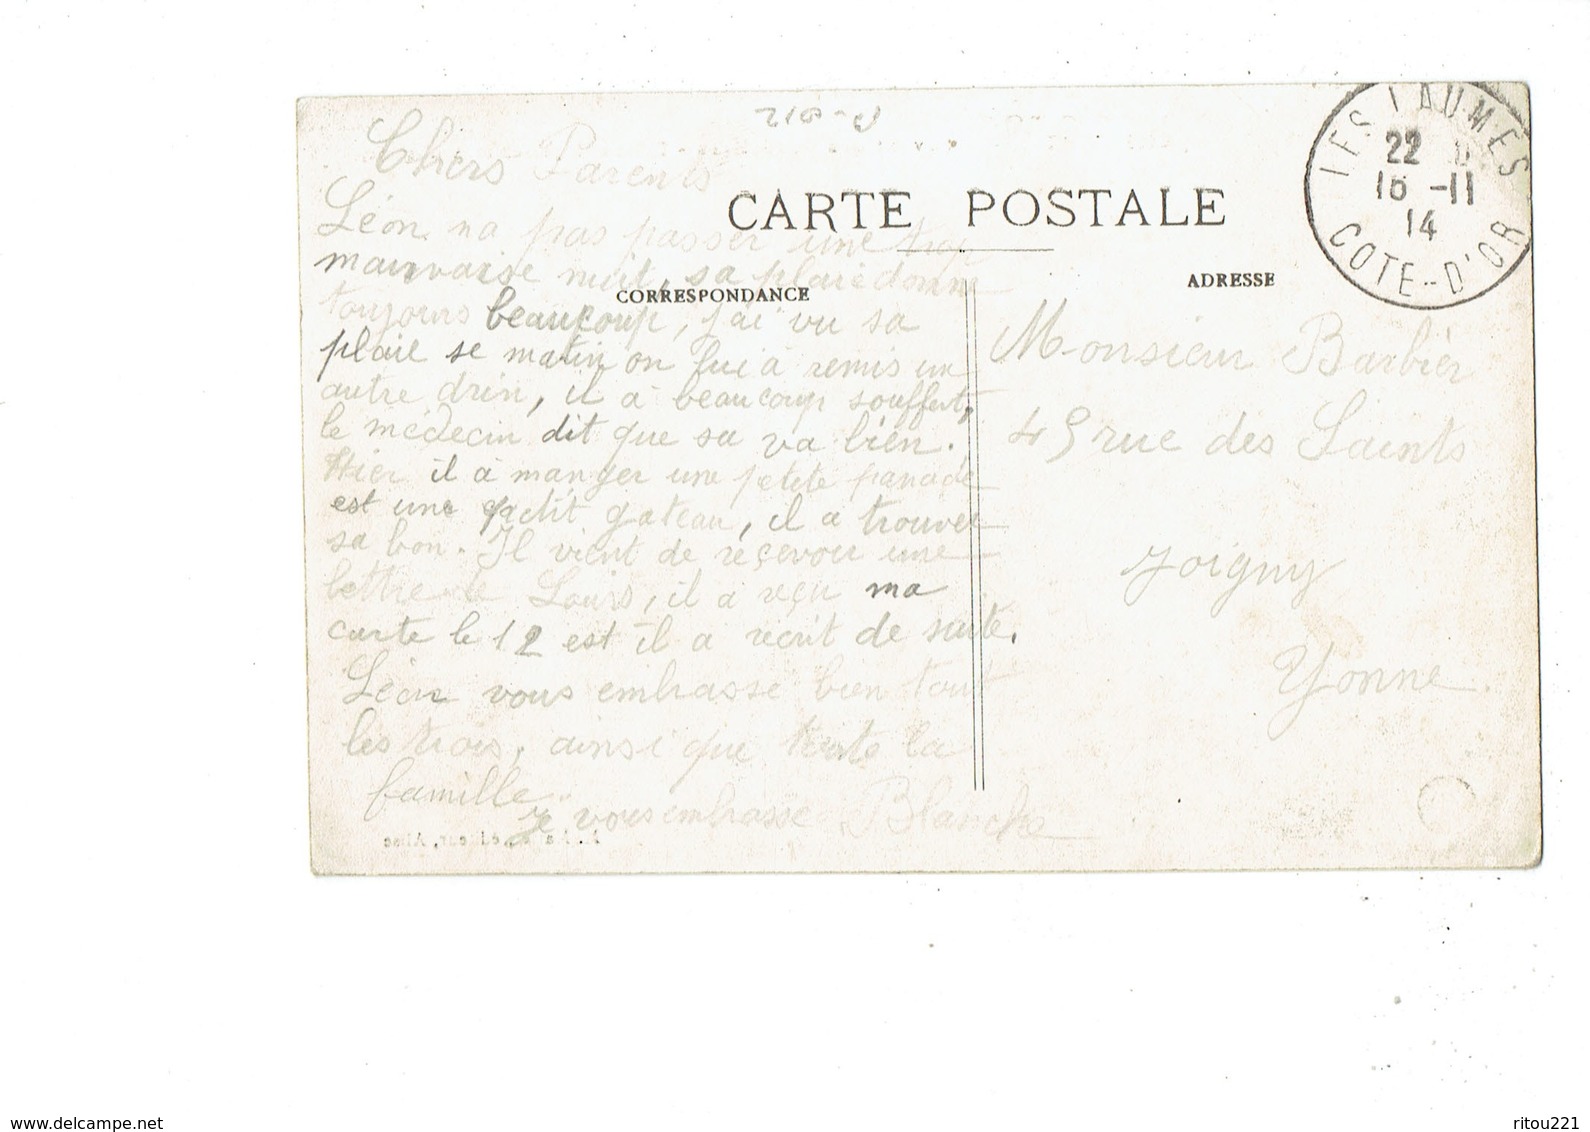 Chers Parents
Léon na pas passer une trop
mauvaise nuit, sa plaie donne
toujours beaucoup, j'ai vu sa
plaie se matin on lui à remis un
autre drin, il à beaucoup souffert,
le médecin dit que sa va bien.
Hier il à manger une petite panade
est une petit gateau, il a trouver
sa bon. Il vient de reçevoir une
lettre de Louis, il a reçu ma
carte le 12 est il a récrit de suite.
Léon vous embrasse bien tout
les trois, ainsi que toute la
famille.
Je vous embrasse Blanche
CARTE POSTALE
CORRESPONDANCE
ADRESSE
LES LAUMES
22
16 -11
14
COTE-D'OR
Monsieur Barbier
45 rue des Saints
Joigny
Yonne.
éditeur, Alise
delcampe.net
ritou221